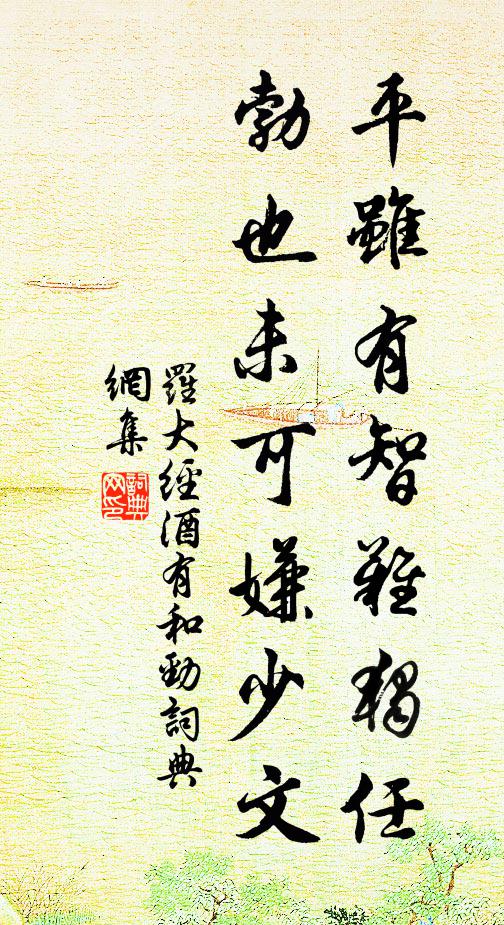 平雖有智難獨任
勃也未可嫌少文
羅大經酒有和勁詞典
網集
詞典
网印